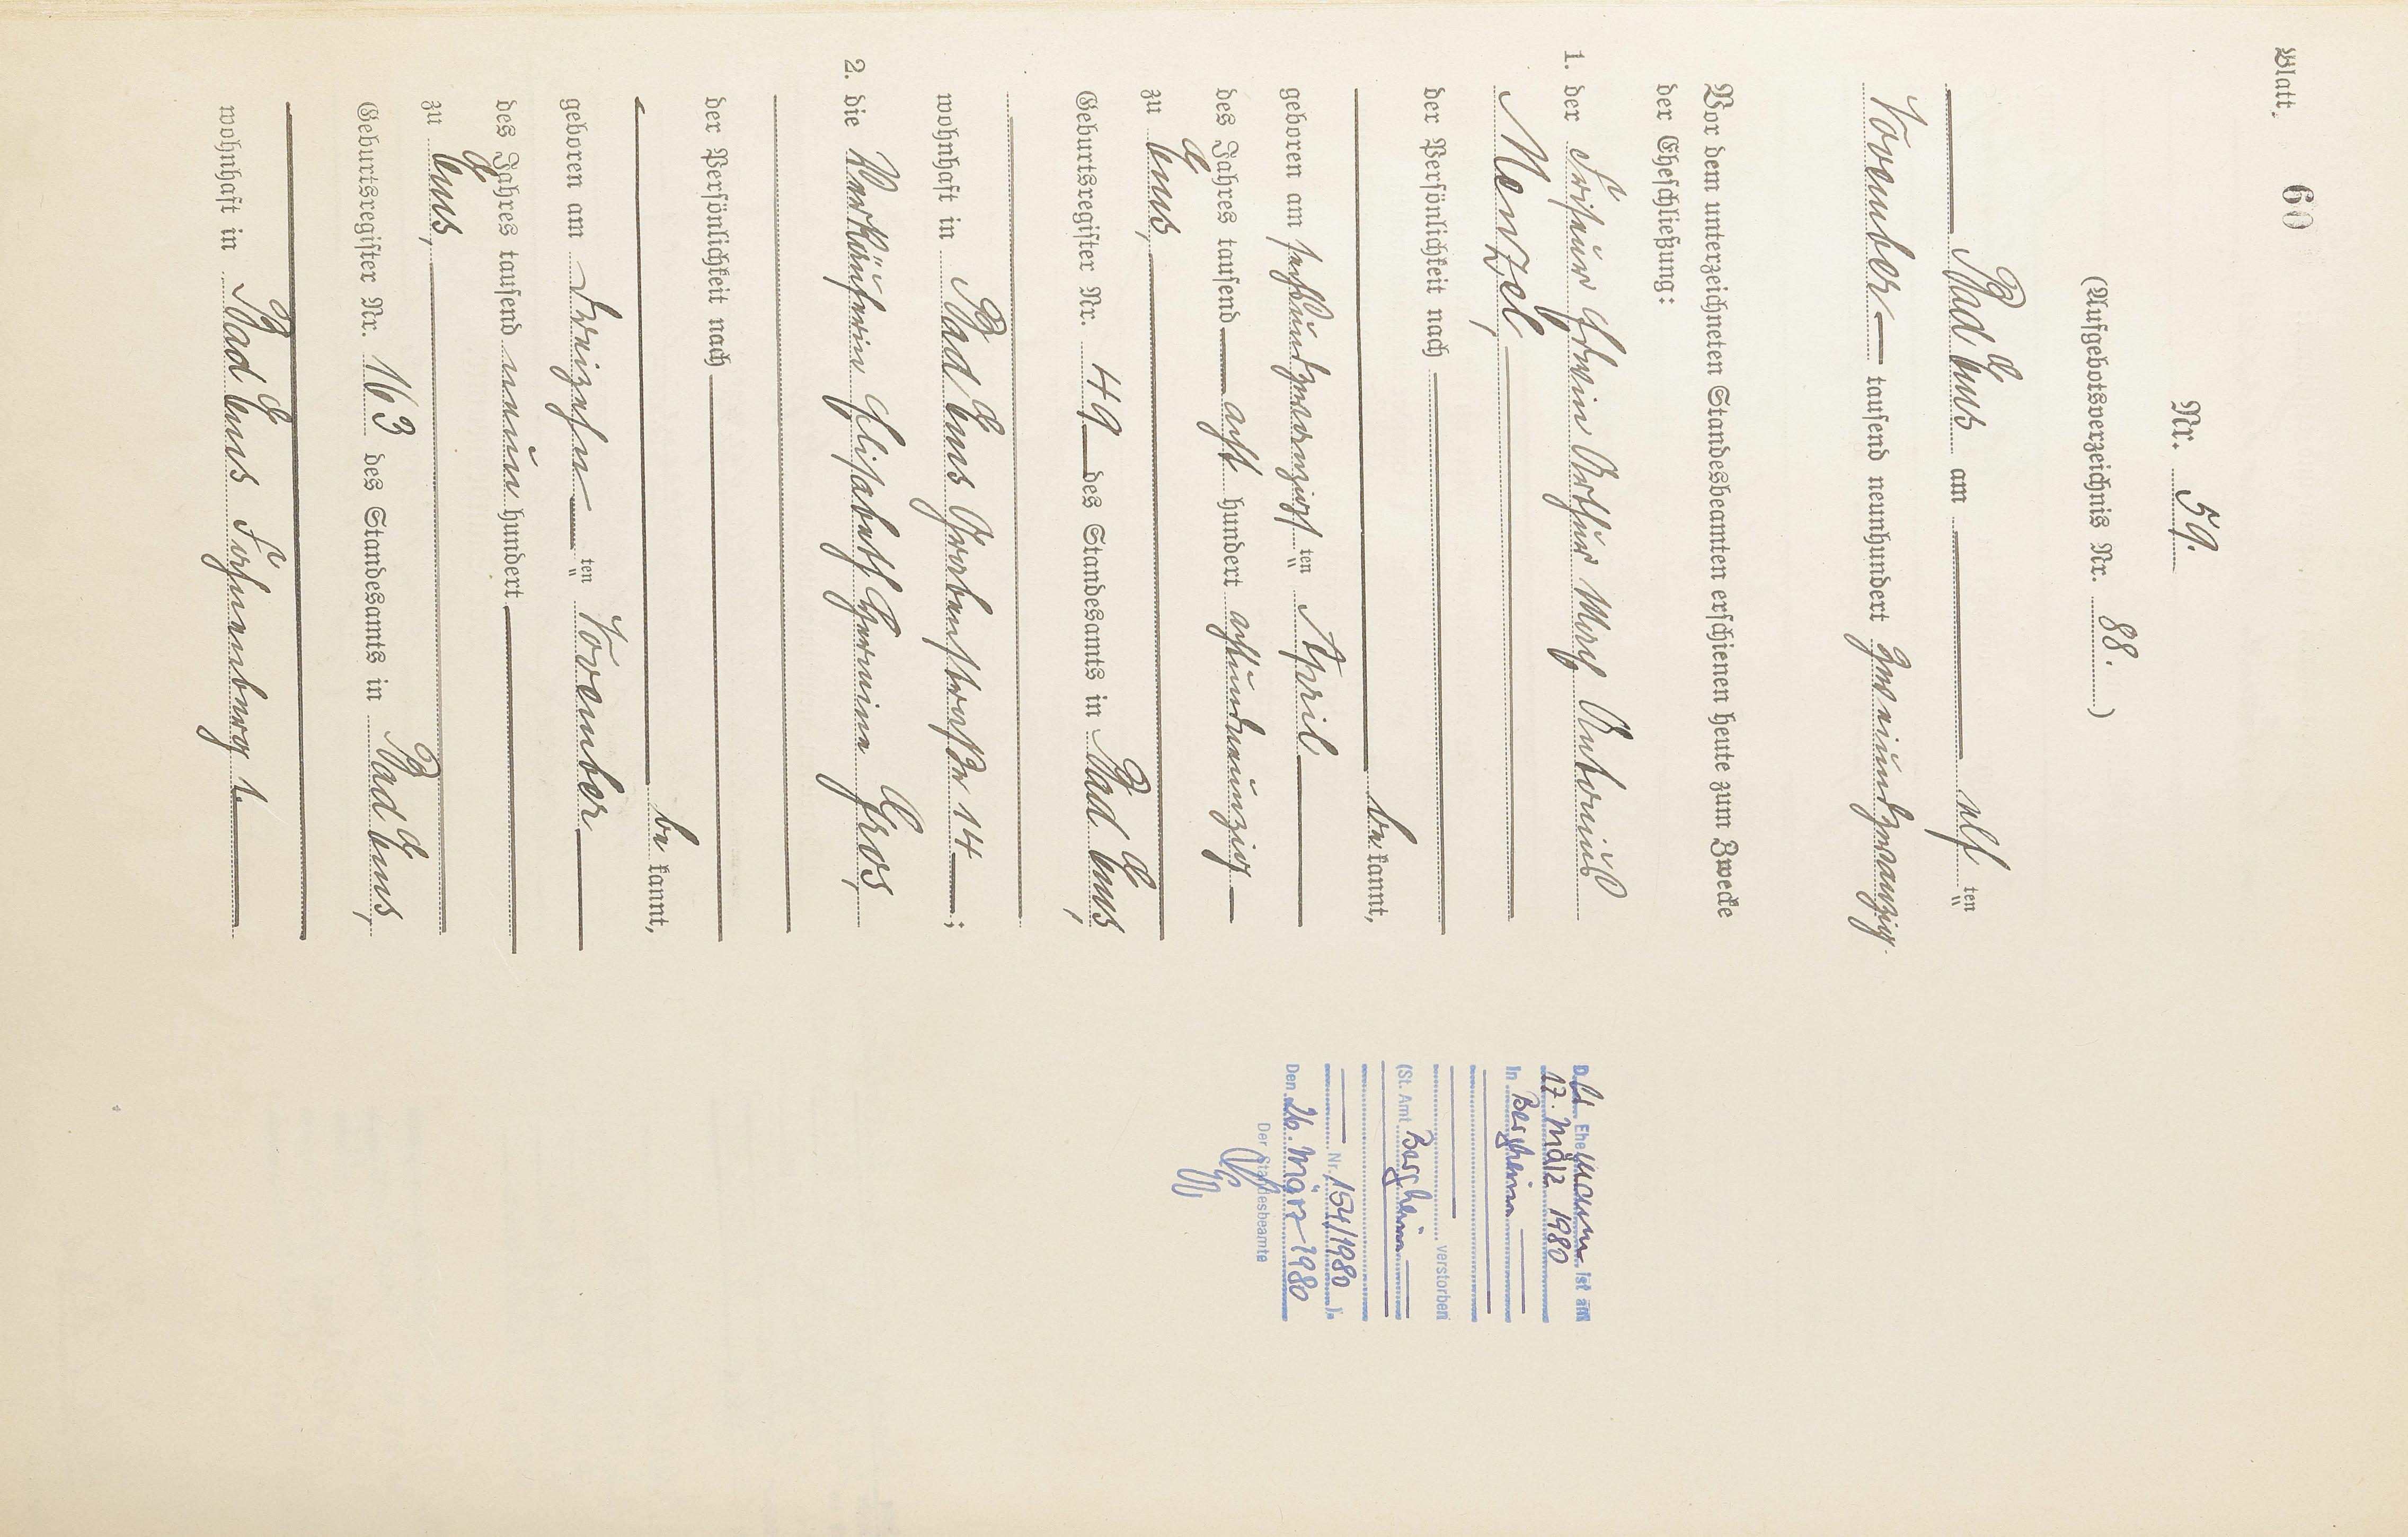 Blatt 60
Nr. 59.
(Aufgebotsverzeichnis Nr. 88.)
Bad Ems am elf ten
November tausend neunhundert zweiundzwanzig
Vor dem unterzeichneten Standesbeamten erschienen heute zum Zwecke
der Eheschließung:
1. der Friseur Erwin Arthur Antonius
Menzel,
der Persönlichkeit nach
be kannt,
geboren am sechsundzwanzigs ten April
des Jahres tausend acht hundert achtundneunzig
zu Ems,
Geburtsregister Nr. 49 des Standesamts in Bad Ems,
wohnhaft in Bad Ems Grabenstraße 14 ;
2. die Verkäuferin Elisabeth Gros,
der Persönlichkeit nach
be kannt,
geboren am dreizehn ten November
des Jahres tausend neun hundert
zu Ems,
Geburtsregister Nr. 163 des Standesamts in Bad Ems,
wohnhaft in Bad Ems 1.
Der Ehemann ist am
17. März 1980
in Bergheim
verstorben
(St. Amt Bergheim
Nr. 154/1980 ).
Den 26. März 1980
Der Standesbeamte